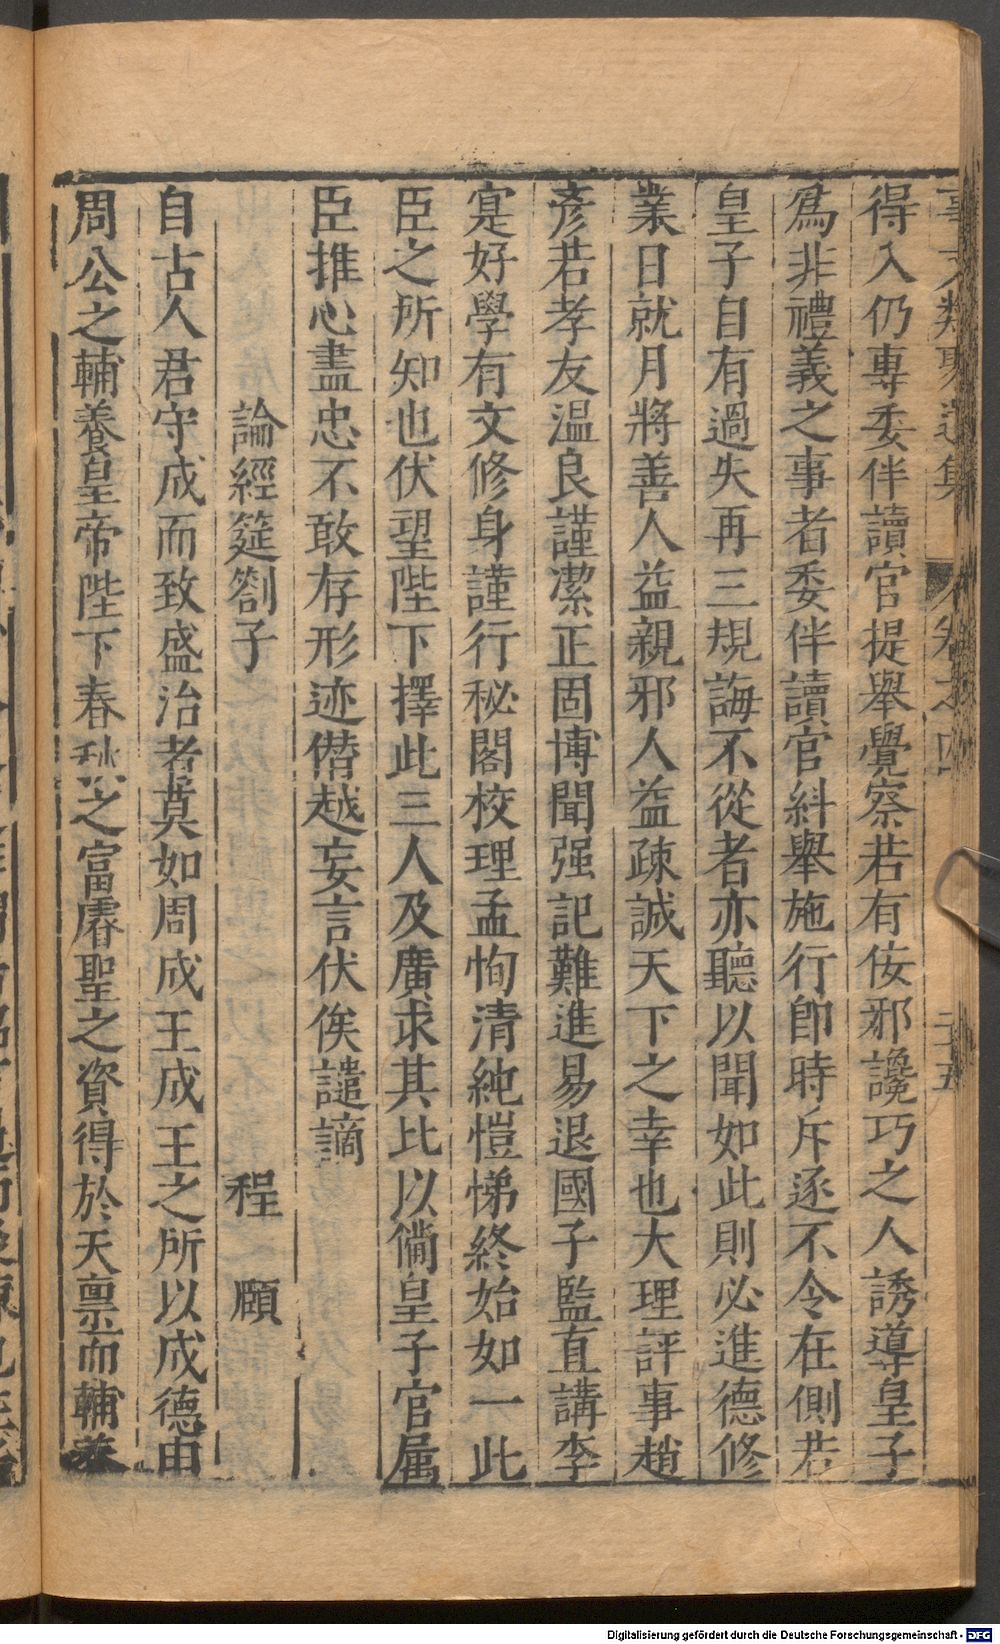 得入仍專委伴讀官提舉覺察若有佞邪讒巧之人誘導皇子
爲非禮義之事者委伴讀官糾舉施行即時斥逐不令在側若
皇子自有過失再三規誨不從者亦聽以聞如此則必進德修
業日就月將善人益親邪人益疎誠天下之幸也大理評事趙
彥若孝友溫良謹潔正固博聞强記難進易退國子監直講李
寔好學有文修身謹行秘閣校理孟恂清純愷悌終始如一此
臣之所知也伏望陛下擇此三人及廣求其比以備皇子官属
臣推心盡忠不敢存形迹僭越妄言伏俟譴謫
論經筵劄子 程 頤
自古人君守成而致盛治者莫如周成王成王之所以成德由
周公之輔養皇帝陛下春秋之富睿聖之資得於天禀而輔養
Digitalisierung gefördert durch die Deutsche Forschungsgemeinschaft - DFG